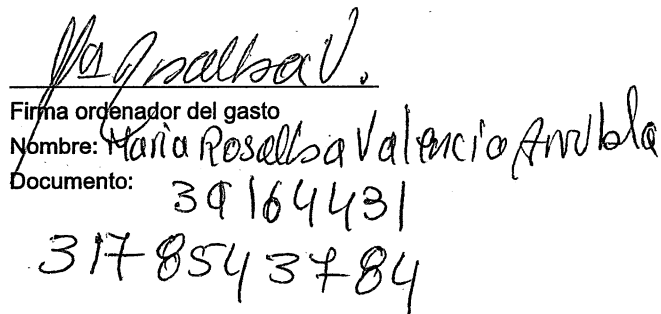 Mª Rosalba V.
Firma ordenador del gasto
Nombre: Maria Rosalba Valencia Arrubla
Documento: 39164431
3178543784